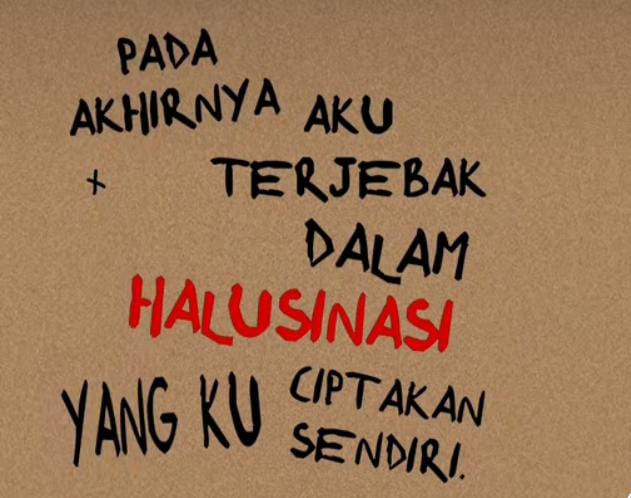 PADA
AKHIRNYA AKU
+ TERJEBAK
DALAM
HALUSINASI
YANG KU CIPTAKAN
SENDIRI.